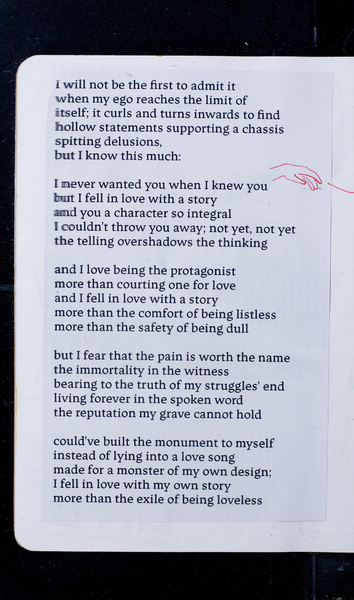 I will not be the first to admit it
when my ego reaches the limit of
itself; it curls and turns inwards to find
hollow statements supporting a chassis
spitting delusions,
but I know this much:
I never wanted you when I knew you
but I fell in love with a story
and you a character so integral
I couldn't throw you away; not yet, not yet
the telling overshadows the thinking
and I love being the protagonist
more than courting one for love
and I fell in love with a story
more than the comfort of being listless
more than the safety of being dull
but I fear that the pain is worth the name
the immortality in the witness
bearing to the truth of my struggles' end
living forever in the spoken word
the reputation my grave cannot hold
could've built the monument to myself
instead of lying into a love song
made for a monster of my own design;
I fell in love with my own story
more than the exile of being loveless